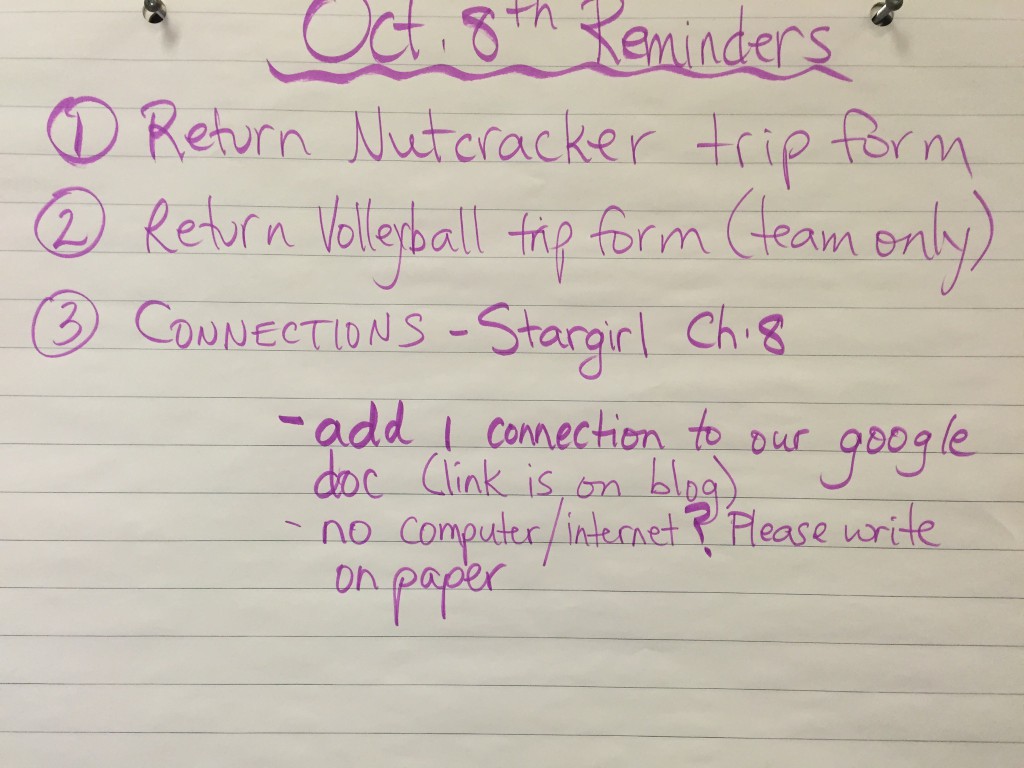 Oct. 8th Reminders
① Return Nutcracker trip form
② Return Volleyball trip form (team only)
③ CONNECTIONS - Stargirl Ch.8
- add 1 connection to our google
doc (link is on blog)
- no computer/internet? Please write
on paper